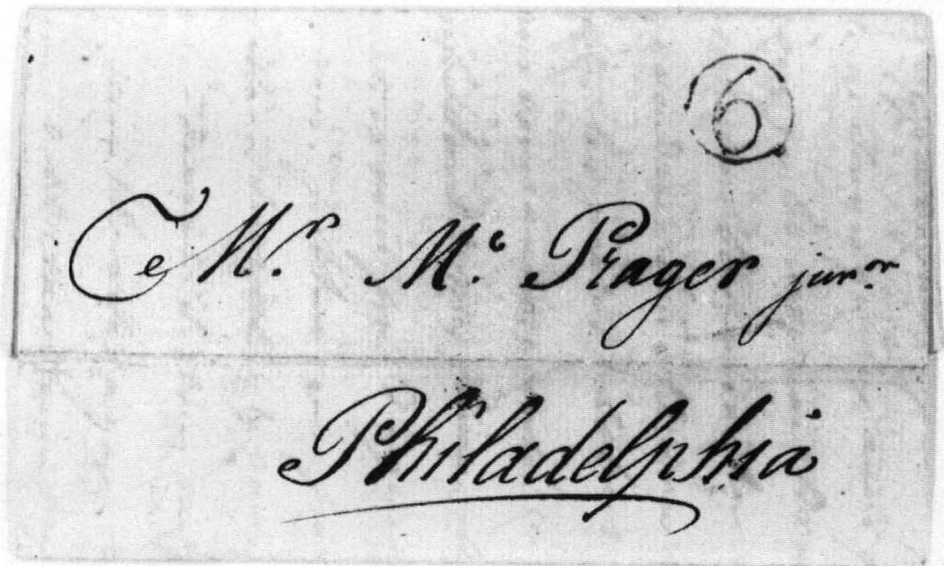 6
Mr. M. Prager junor
Philadelphia